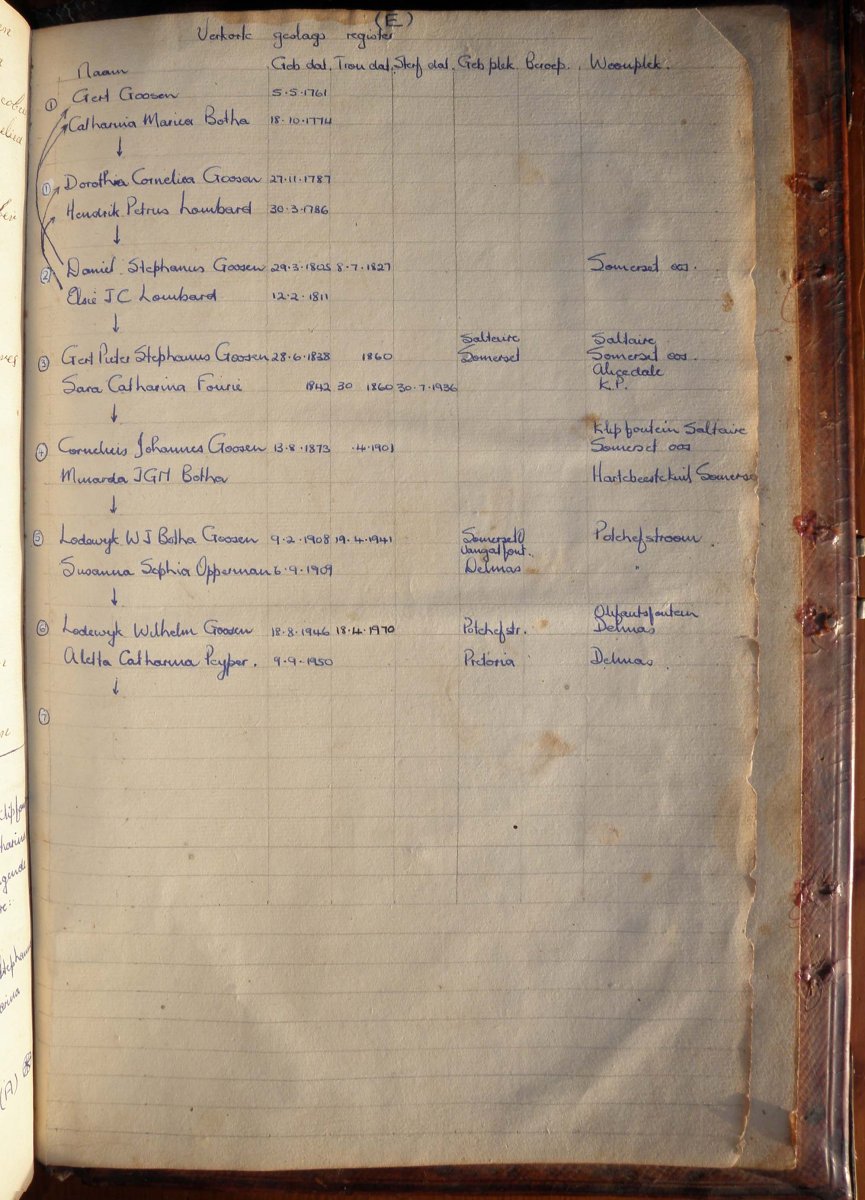 (E)
Verkorte geslags register
Naam Geb dat. Trou dat. Sterf dat. Geb plek. Beroep. Woonplek.
① Gert Goosen 5.5.1761
Catharina Maria Botha 18.10.1774
↓
① Dorothia Cornelia Goosen 27.11.1787
Hendrik Petrus Lombard 30.3.1786
↓
② Daniel Stephanus Goosen 29.3.1805 8.7.1827 Somerset oos.
Elsie J C Lombard 12.2.1811
↓
Saltaire Saltaire
③ Gert Pieter Stephanus Goosen 28.6.1838 1860 Somerset Somerset oos.
Alicedale
Sara Catharina Fourie 1842 30 1860 30.7.1936 K.P.
↓
Klipfontein Saltaire
④ Cornelius Johannes Goosen 13.8.1873 .4.1901 Somerset oos
Minarda JGM Botha Hartebeestekuil Somerset
↓
⑤ Lodewyk W J Botha Goosen 9.2.1908 19.4.1941 Somerset O Potchefstroom.
Susanna Sophia Opperman 6.9.1909 Delmas "
↓
Olifantsfontein
⑥ Lodewyk Wilhelm Goosen 18.8.1946 18.4.1970 Potchefstr. Delmas
Aletta Catharina Peyper. 9.9.1950 Pretoria Delmas.
↓
⑦
(A)